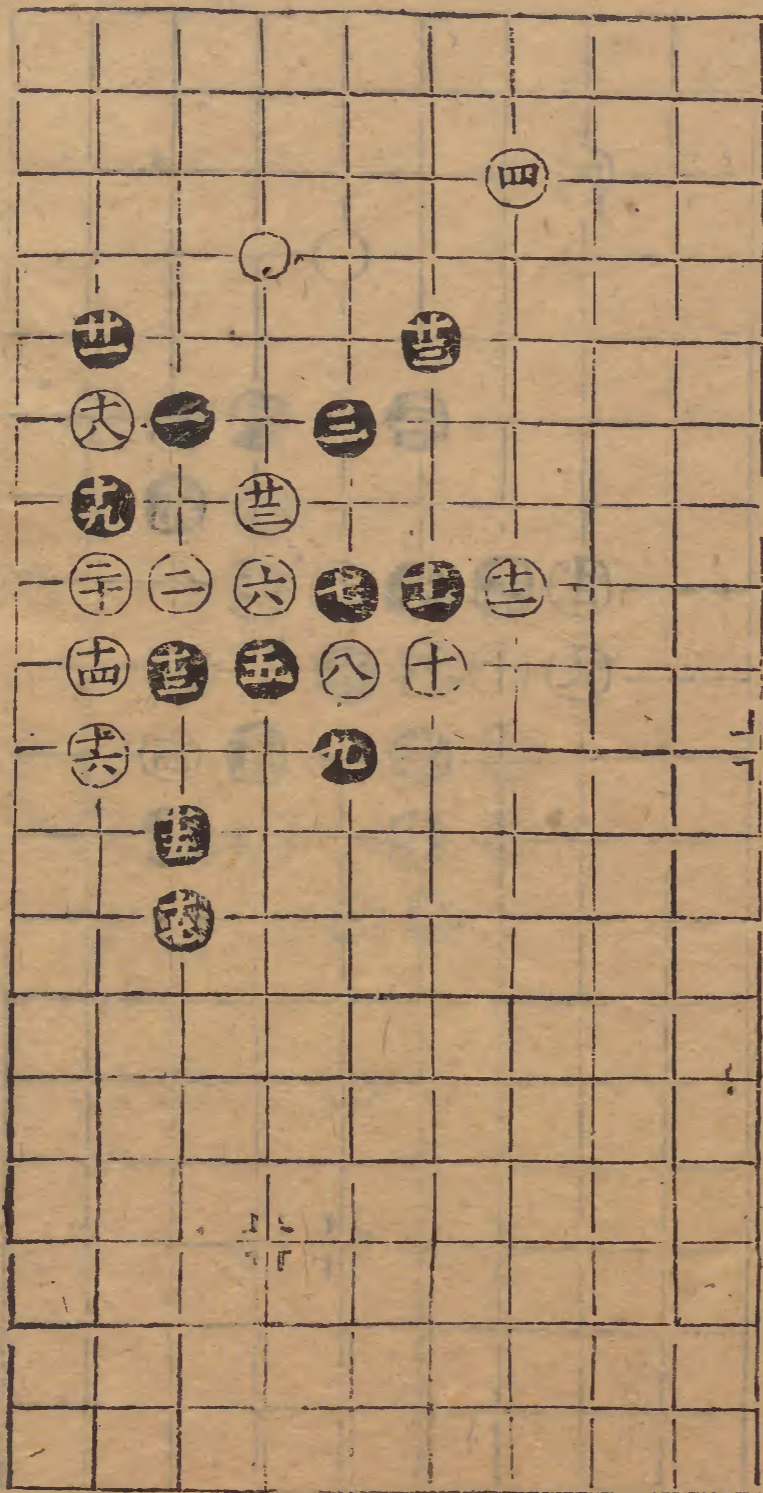 四
廿一 廿三
十八 一 三
十九 廿二
二十 二 六 七 十一 十二
十四 十三 五 八 十
十六 九
十五
十七